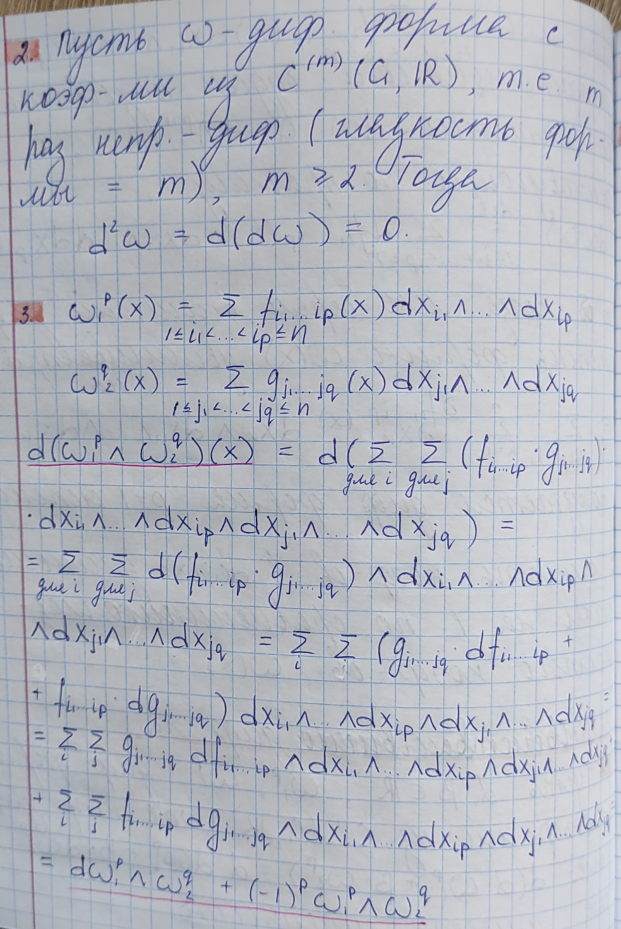 2. Пусть ω - диф. форма с
коэф-ми из C^(m) (G, IR), т.е. m
раз непр.-диф. (гладкость фор-
мы = m), m ≥ 2. Тогда
d²ω = d(dω) = 0.
3. ω₁ᵖ(x) = Σ f_{i₁...iₚ}(x) dx_{i₁} ∧ ... ∧ dx_{iₚ}
1≤i₁<...<iₚ≤n
ω₂^q(x) = Σ g_{j₁...j_q}(x) dx_{j₁} ∧ ... ∧ dx_{j_q}
1≤j₁<...<j_q≤n
d(ω₁ᵖ ∧ ω₂^q)(x) = d(Σ Σ (f_{i₁...iₚ} · g_{j₁...j_q}) ·
для i для j
· dx_{i₁} ∧ ... ∧ dx_{iₚ} ∧ dx_{j₁} ∧ ... ∧ dx_{j_q}) =
= Σ Σ d(f_{i₁...iₚ} · g_{j₁...j_q}) ∧ dx_{i₁} ∧ ... ∧ dx_{iₚ} ∧
для i для j
∧ dx_{j₁} ∧ ... ∧ dx_{j_q} = Σ_i Σ_j (g_{j₁...j_q} · df_{i₁...iₚ} +
+ f_{i₁...iₚ} · dg_{j₁...j_q}) dx_{i₁} ∧ ... ∧ dx_{iₚ} ∧ dx_{j₁} ∧ ... ∧ dx_{j_q} =
= Σ_i Σ_j g_{j₁...j_q} df_{i₁...iₚ} ∧ dx_{i₁} ∧ ... ∧ dx_{iₚ} ∧ dx_{j₁} ∧ ... ∧ dx_{j_q}
+ Σ_i Σ_j f_{i₁...iₚ} dg_{j₁...j_q} ∧ dx_{i₁} ∧ ... ∧ dx_{iₚ} ∧ dx_{j₁} ∧ ... ∧ dx_{j_q} =
= dω₁ᵖ ∧ ω₂^q + (-1)ᵖ ω₁ᵖ ∧ ω₂^q